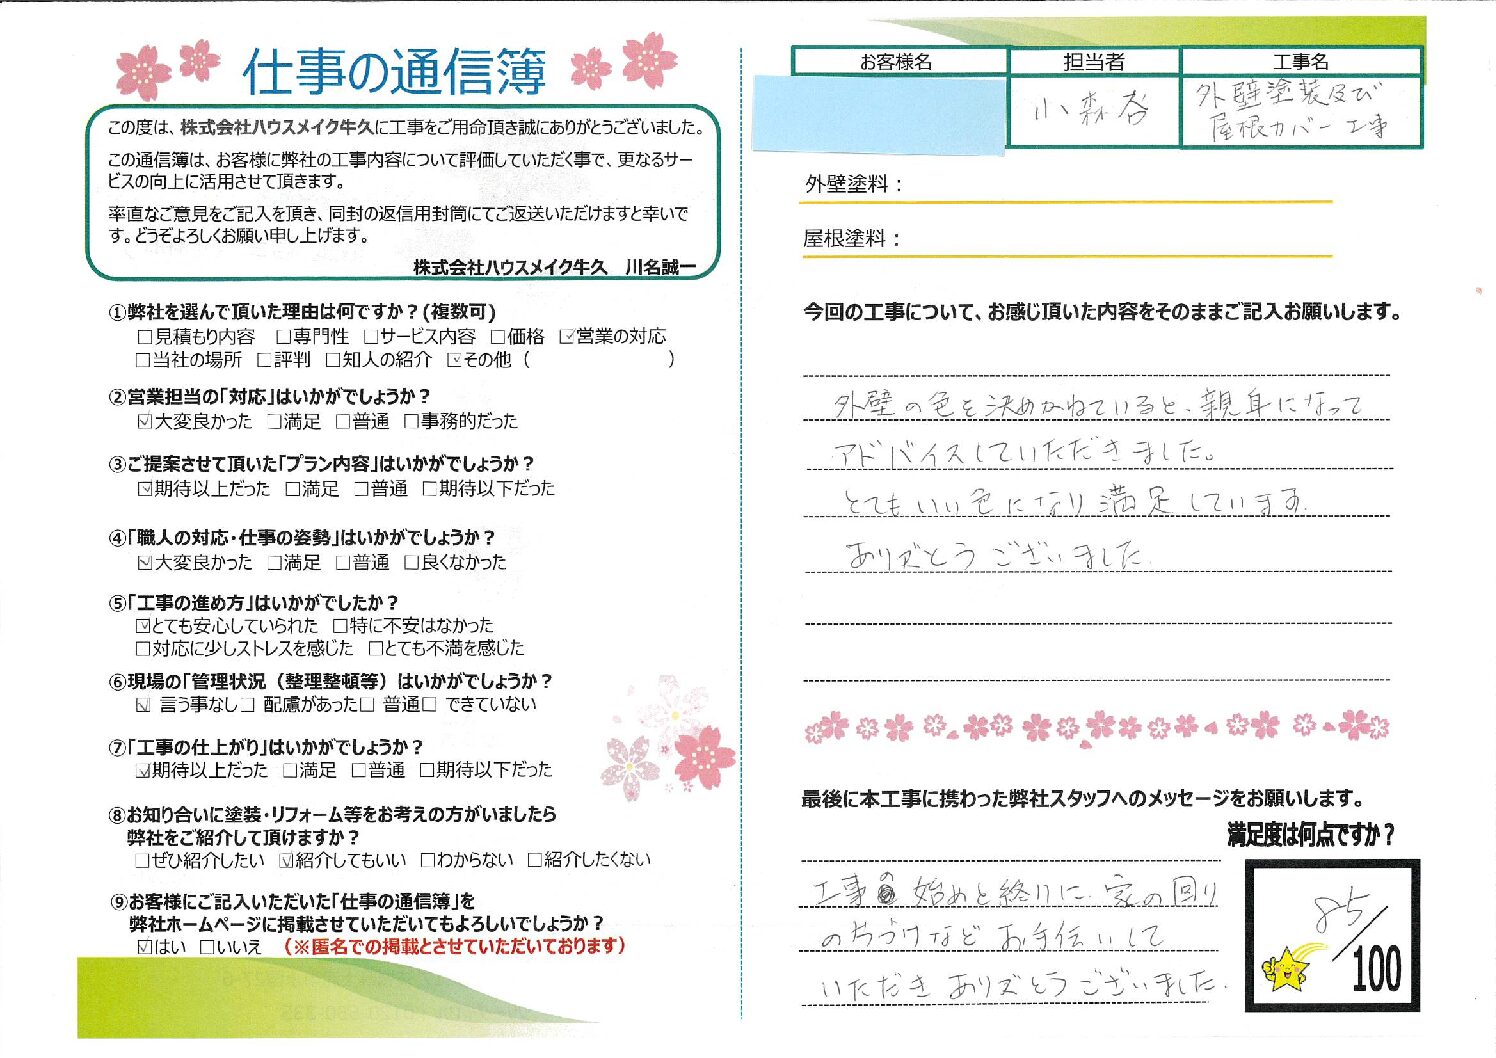 仕事の通信簿
この度は、株式会社ハウスメイク牛久に工事をご用命頂き誠にありがとうございました。
この通信簿は、お客様に弊社の工事内容について評価していただく事で、更なるサー
ビスの向上に活用させて頂きます。
率直なご意見をご記入を頂き、同封の返信用封筒にてご返送いただけますと幸いで
す。どうぞよろしくお願い申し上げます。
株式会社ハウスメイク牛久　川名誠一
①弊社を選んで頂いた理由は何ですか？(複数可)
□見積もり内容　□専門性　□サービス内容　□価格　☑営業の対応
□当社の場所　□評判　□知人の紹介　☑その他（　　　　　　　）
②営業担当の「対応」はいかがでしょうか？
☑大変良かった　□満足　□普通　□事務的だった
③ご提案させて頂いた「プラン内容」はいかがでしょうか？
☑期待以上だった　□満足　□普通　□期待以下だった
④「職人の対応・仕事の姿勢」はいかがでしょうか？
☑大変良かった　□満足　□普通　□良くなかった
⑤「工事の進め方」はいかがでしたか？
☑とても安心していられた　□特に不安はなかった
□対応に少しストレスを感じた　□とても不満を感じた
⑥現場の「管理状況（整理整頓等）はいかがでしょうか？
☑ 言う事なし□ 配慮があった□ 普通□ できていない
⑦「工事の仕上がり」はいかがでしょうか？
☑期待以上だった　□満足　□普通　□期待以下だった
⑧お知り合いに塗装・リフォーム等をお考えの方がいましたら
弊社をご紹介して頂けますか？
□ぜひ紹介したい　☑紹介してもいい　□わからない　□紹介したくない
⑨お客様にご記入いただいた「仕事の通信簿」を
弊社ホームページに掲載させていただいてもよろしいでしょうか？
☑はい　□いいえ　（※匿名での掲載とさせていただいております）
お客様名　担当者　工事名
小森谷　外壁塗装及び
屋根カバー工事
外壁塗料：
屋根塗料：
今回の工事について、お感じ頂いた内容をそのままご記入お願いします。
外壁の色を決めかねていると、親身になって
アドバイスしていただきました。
とてもいい色になり満足しています。
ありがとうございました。
最後に本工事に携わった弊社スタッフへのメッセージをお願いします。
満足度は何点ですか？
工事の始めと終りに、家の回り
のかたづけなどお手伝いして
いただきありがとうございました。
85/100